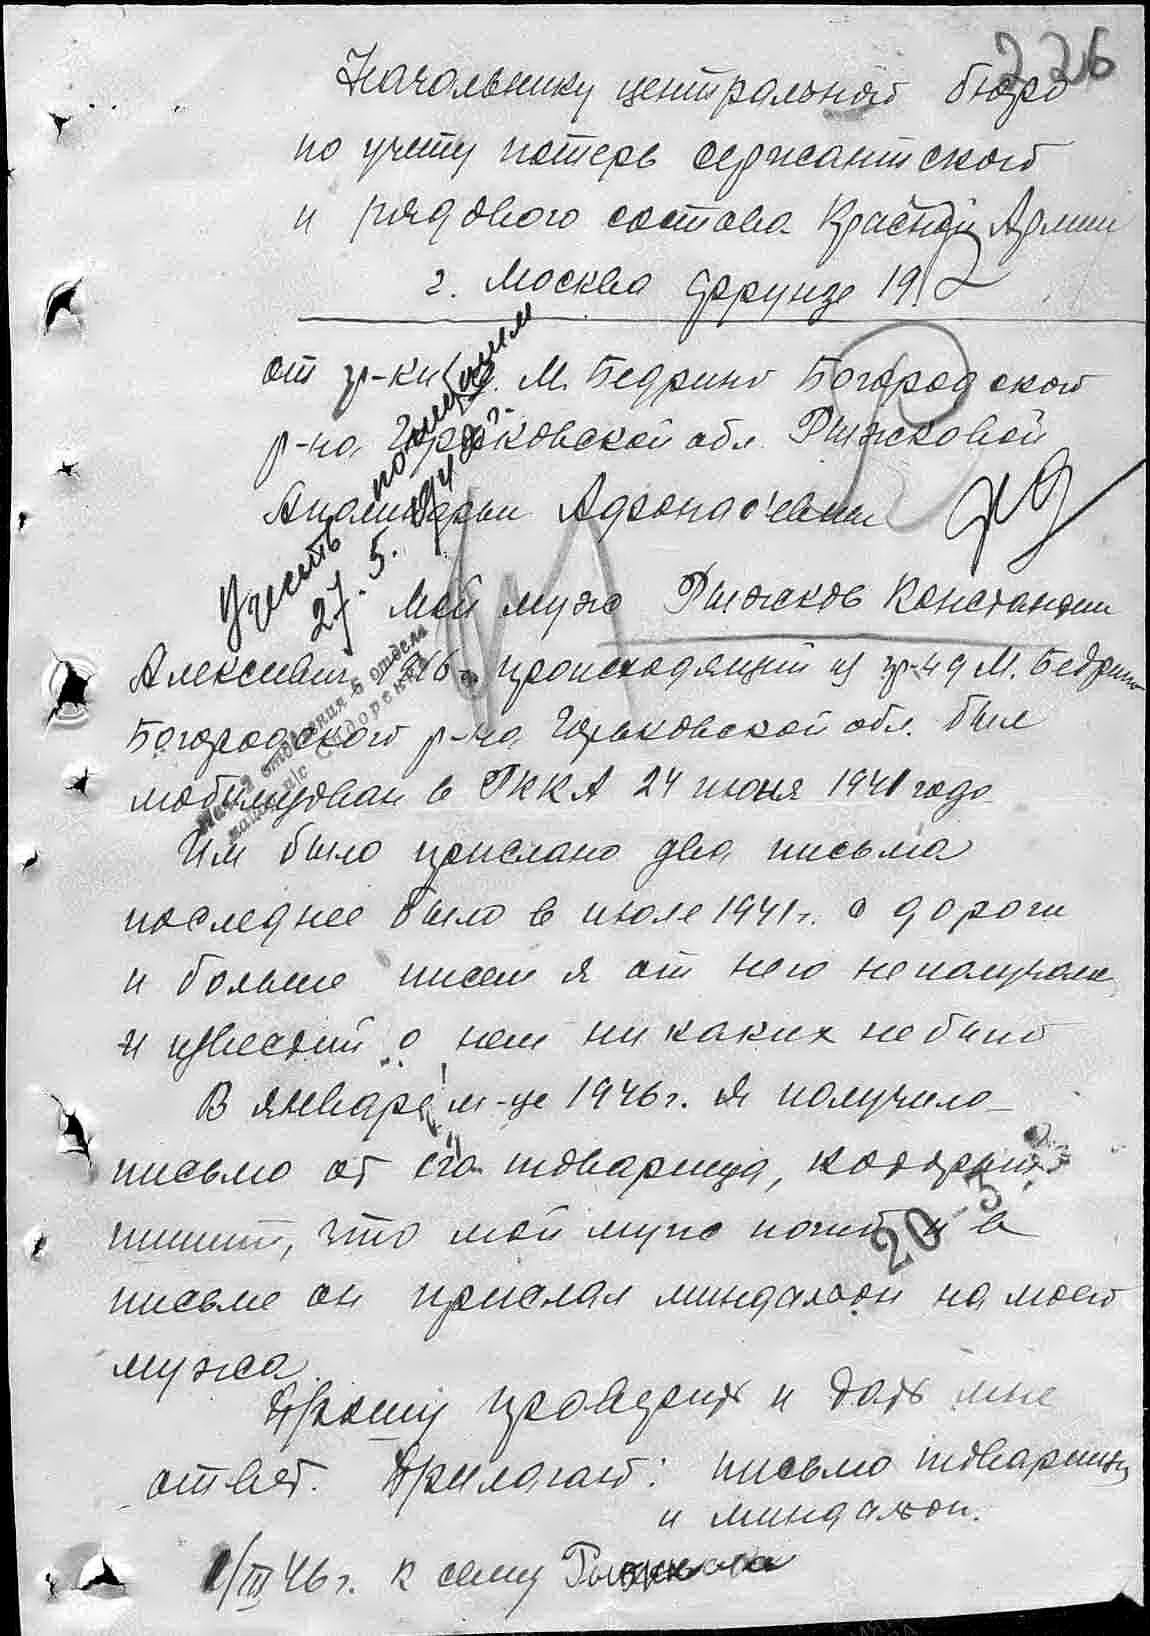 226
Начальнику центральной бюро
по учету потерь сержантского
и рядового состава Красной Армии
г. Москва Фрунзе 19
от гр-ки М. Бедрино Богородской
р-на Горьковской обл. Рыжковой
Аполинарьи Афонасьевны
Учесть погибшим
27. 5.
Мой муж Рыжков Константин
Алексеевич происходящий из гр-н д М. Бедрино
Богородского р-на Горьковской обл. был
мобилизован в РККА 24 июня 1941 года
отделения 5 отдела
Сидоренко
Им было прислано два письма
последнее было в июле 1941 г. с дороги
и больше писем я от него неполучала
и известий о нем ни каких небыло
В январе м-це 1946 г. я получила
письмо от его товарища, который
пишит, что мой муж погиб и в
20 3
письме он прислал миндальон на моего
мужа.
Прошу проверить и дать мне
ответ. Прилагаю: письмо товарища
и миндальон.
/III 46 г. к сему Рыжкова